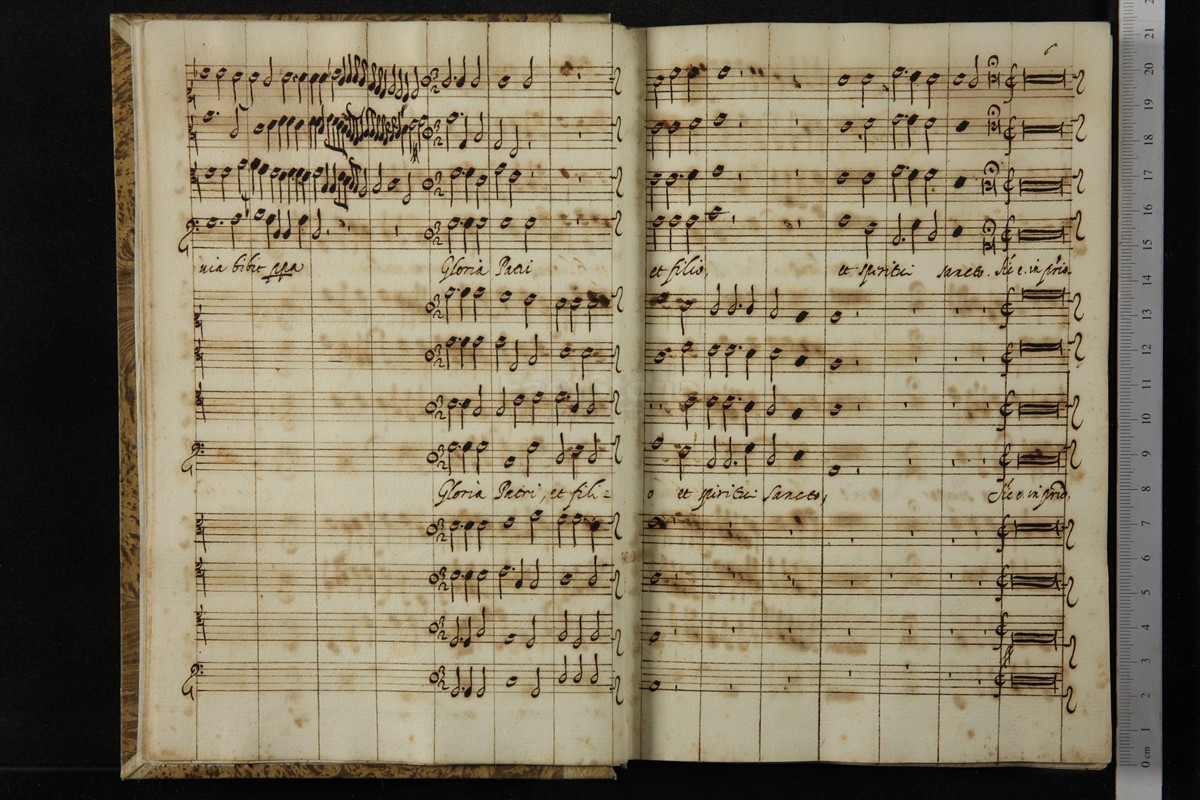 6
via bibit ppa
Gloria Patri
et filio,
et spiritui sancto. Sic e. in prio.
Gloria Patri, et fili =
o et spiritui Sancto,
Sic e. in prio.
0 cm 1 2 3 4 5 6 7 8 9 10 11 12 13 14 15 16 17 18 19 20 21